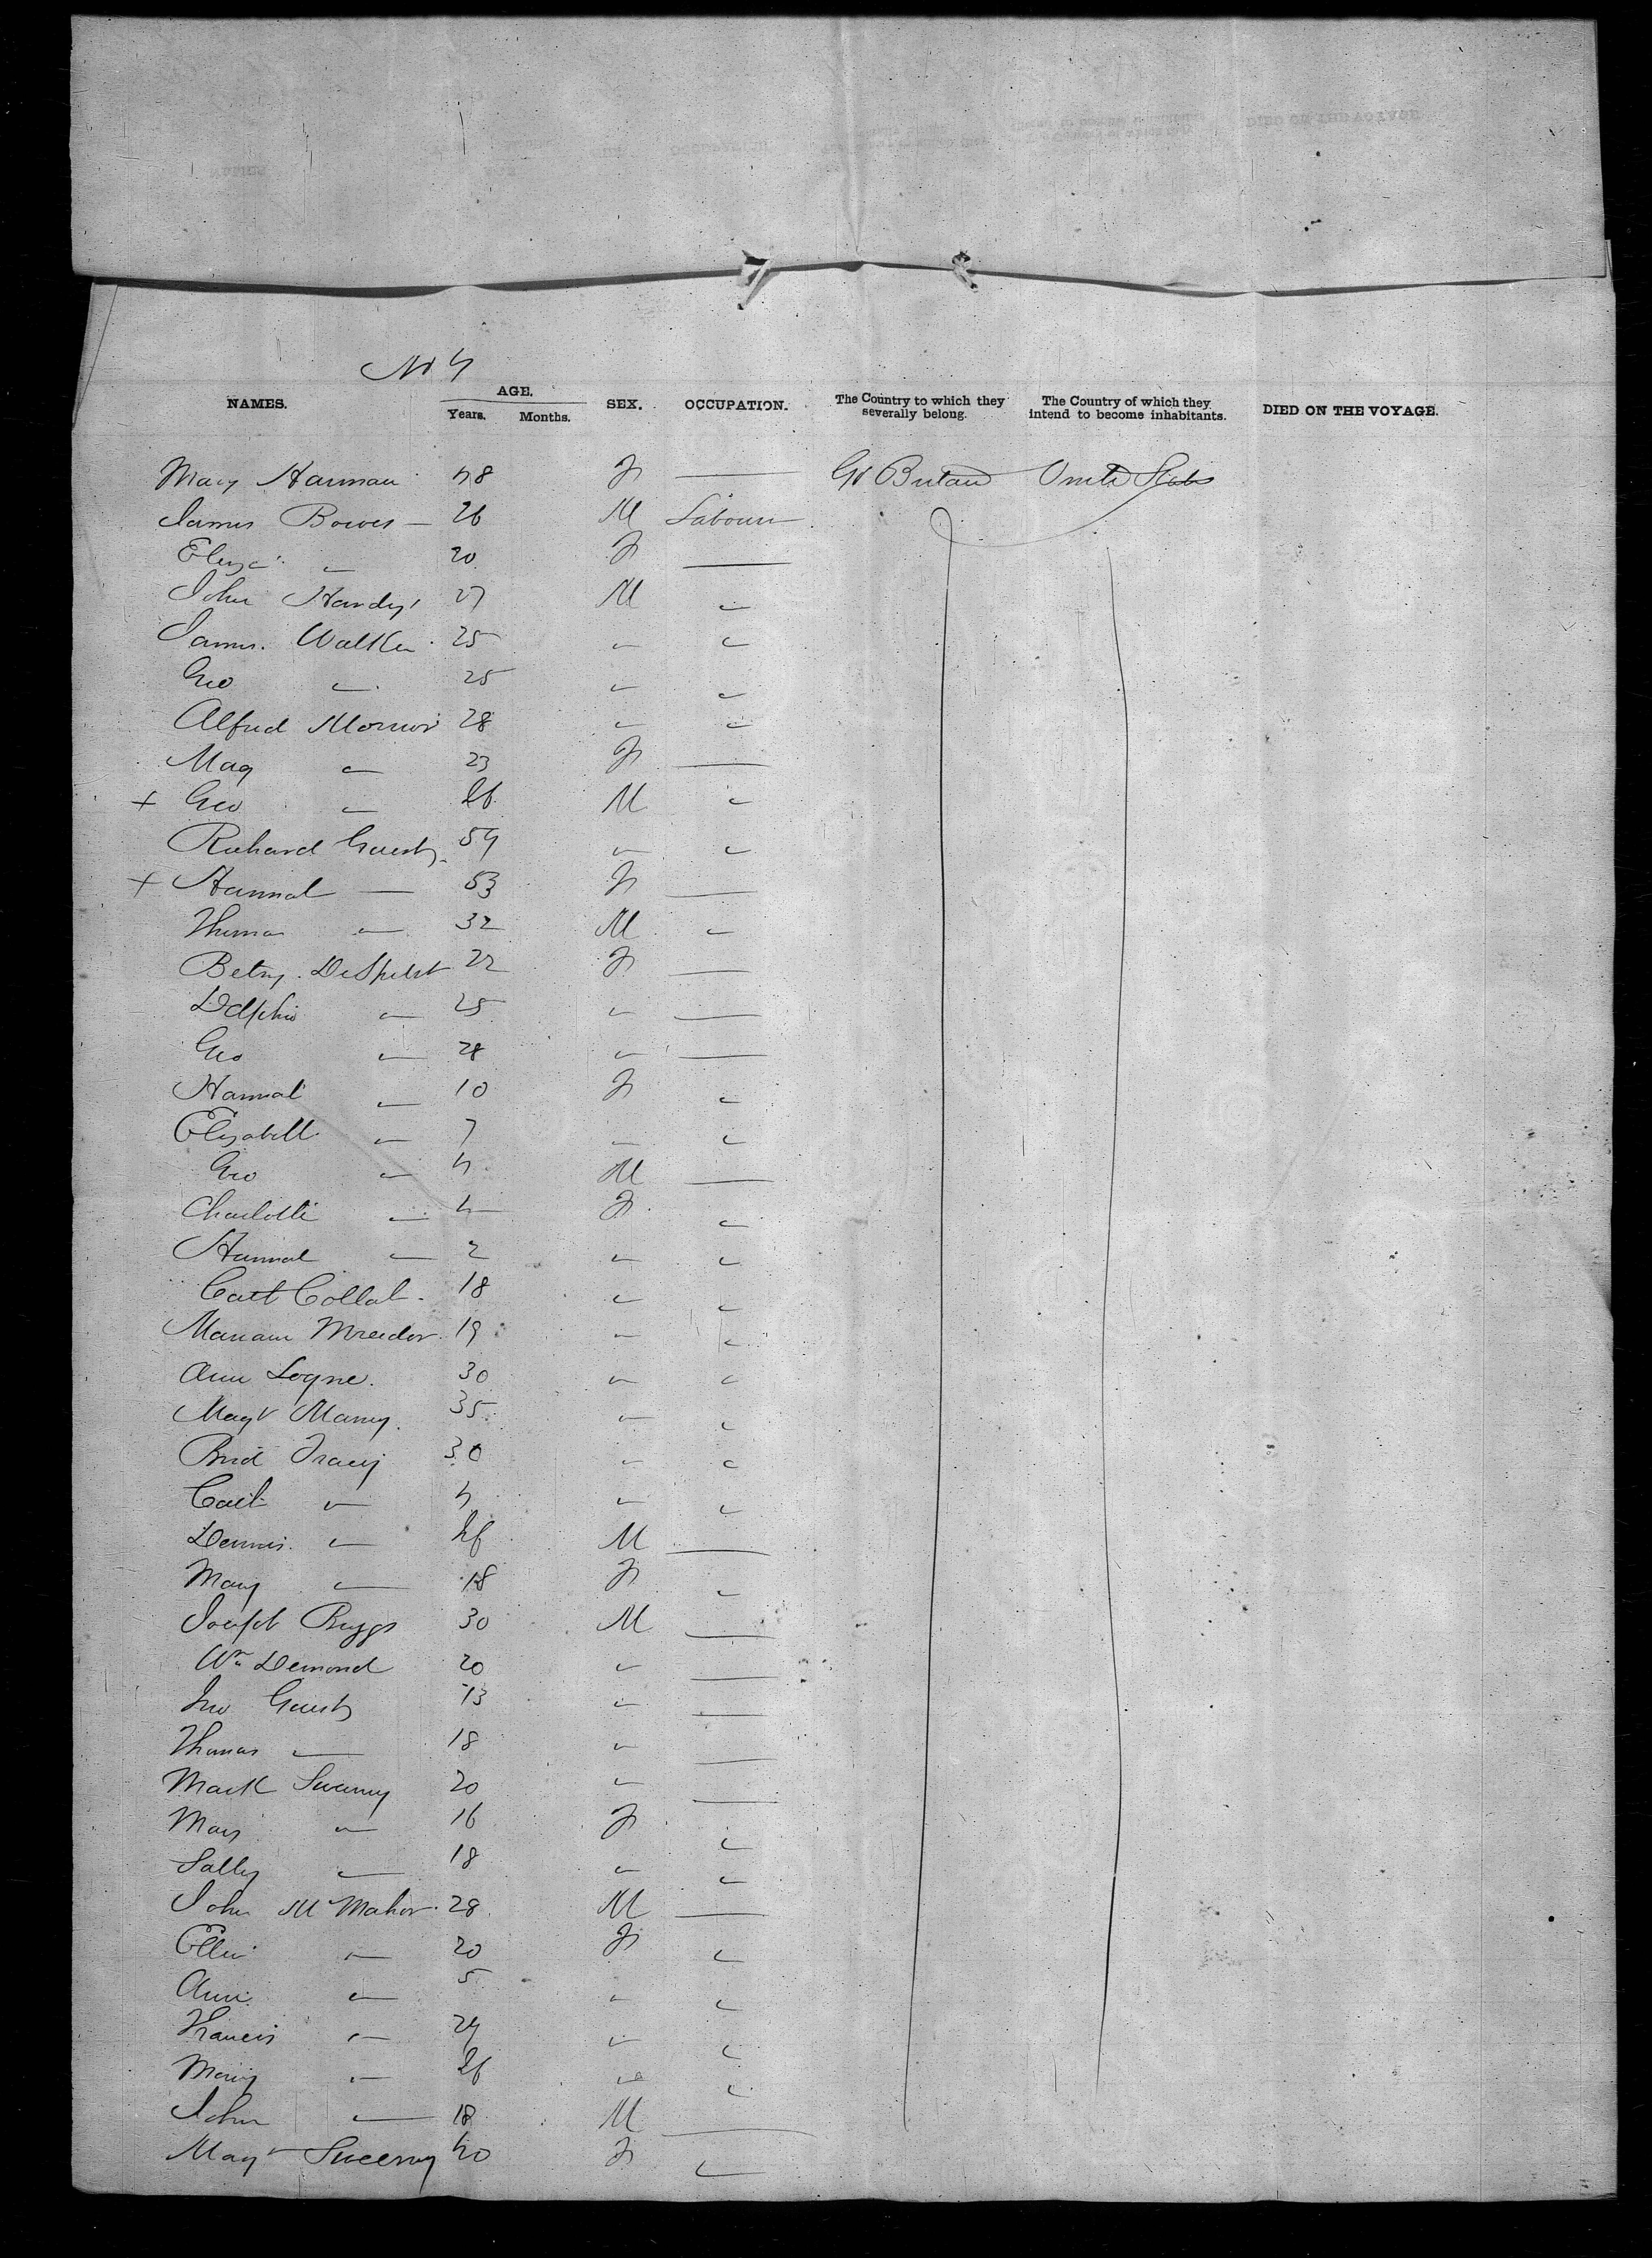 No 4
NAMES. AGE. Years. Months. SEX. OCCUPATION. The Country to which they severally belong. The Country of which they intend to become inhabitants. DIED ON THE VOYAGE.
Mary Harman 48 F — Gt Britain United States
James Bower — 26 M Labourer
Eliza " 20 F —
John Hardy 27 M "
James Walker 25 " "
Geo " 25 " "
Alfred 28 " "
Mary " 23 F —
+ Geo " Inf M "
Richard Guest 54 " "
+ Hannah — 53 F —
Thomas " 32 M "
Betsy 22 F —
" 25 " —
Geo " 28 " —
Hannah " 10 F "
Elizabeth " 7 " "
Geo " 4 M —
Charlotte " 4 F "
Hannah " 2 " "
Cath 18 " "
19 " "
Ann Logne 30 " "
Magt 35 " "
Brid Tracy 30 " "
Cath " 4 " "
Dennis " Inf M —
Mary " 18 F "
Joseph Biggs 30 M —
Wm Demond 20 " —
Jno Guest 13 " —
Thomas " 18 " —
Mark Sweeny 20 " —
Mary " 16 F "
Sally " 18 " "
John McMahon 28 M —
Ellen " 20 F "
Ann " 5 " "
Francis " 24 " "
Mary " Inf " "
John " 18 M —
Magt Sweeney 40 F "